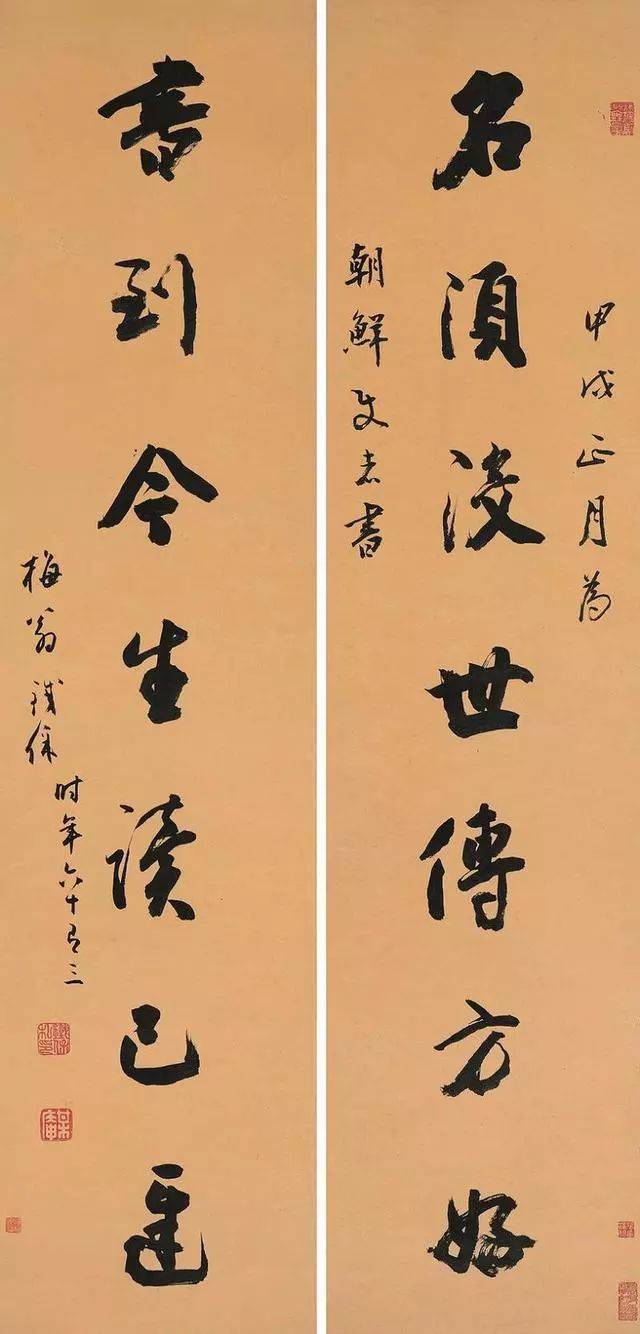 甲戌正月為
名須後世傳方好
朝鮮書
書到今生讀已遲
梅翁鐵保時年六十有三